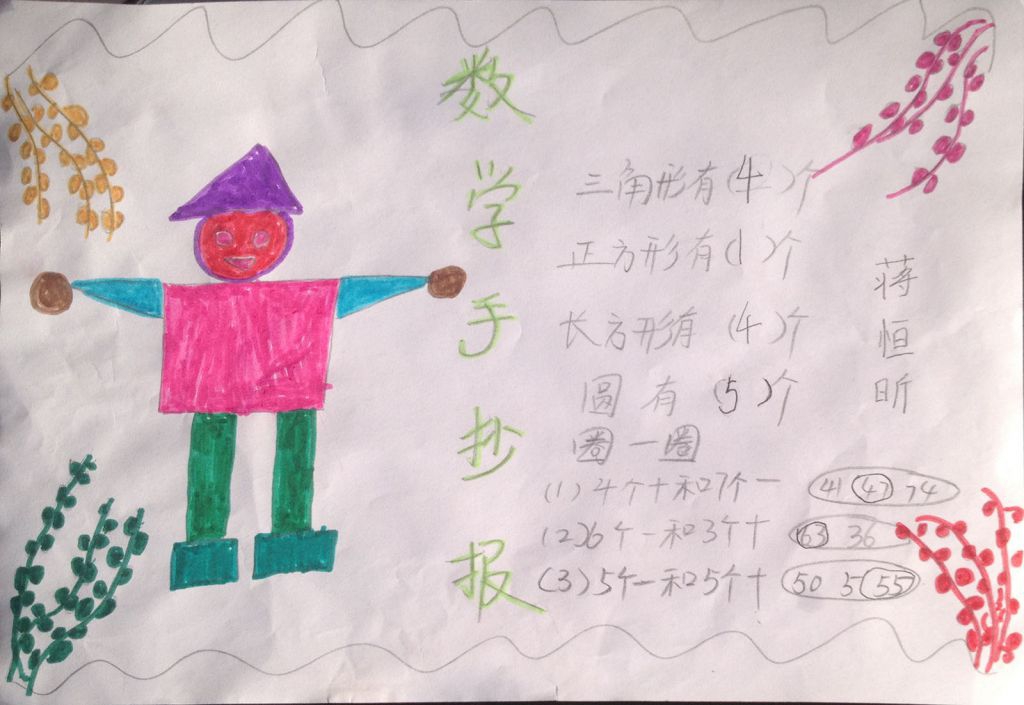 数学手抄报
三角形有(4)个
正方形有(1)个
长方形有(4)个
圆有(5)个
圈一圈
(1)4个十和7个一 41 47 74
(2)6个一和3个十 63 36
(3)5个一和5个十 50 5 55
蒋恒昕